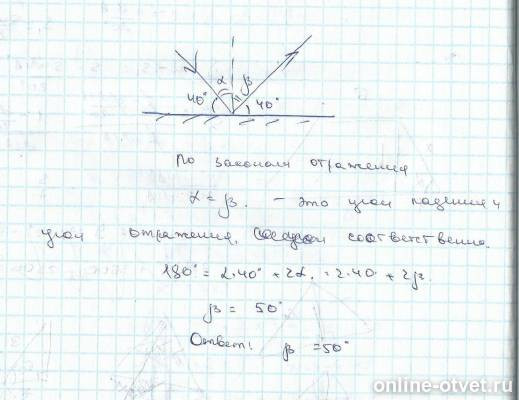 α β
40° 40°
По законам отражения
α = β. - это угол падения и
угол отражения, соответственно.
180° = 2·40° + 2α. = 2·40 + 2β.
β = 50°
Ответ: β = 50°
online-otvet.ru